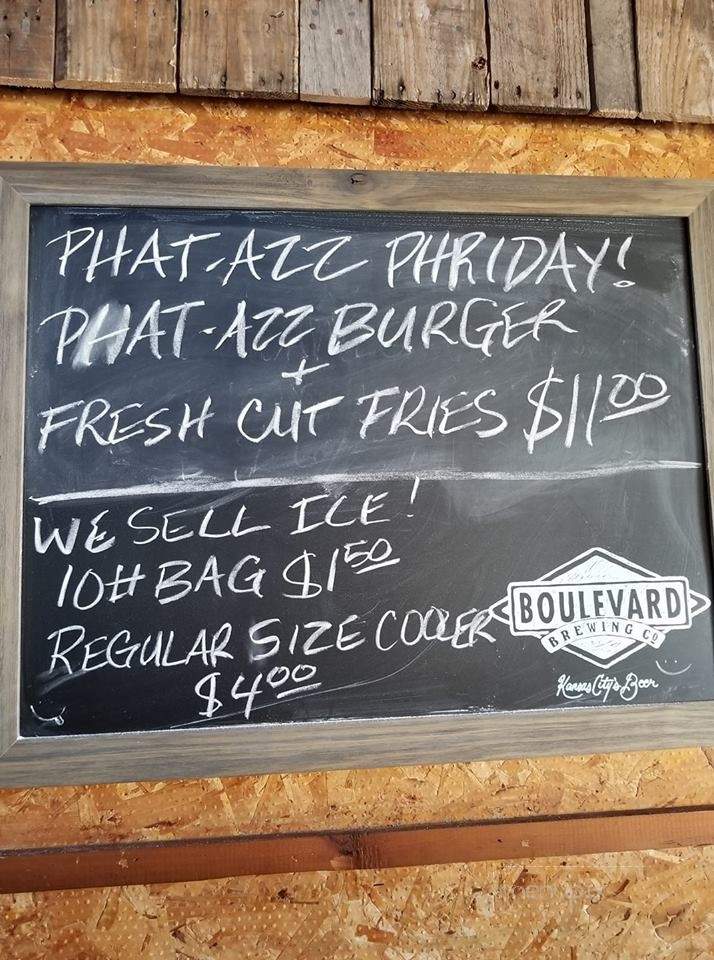 PHAT-AZZ PHRIDAY!
PHAT-AZZ BURGER
+
FRESH CUT FRIES $11.00
WE SELL ICE!
10# BAG $1.50
REGULAR SIZE COOLER
$4.00
BOULEVARD
BREWING CO
Kansas City's Beer